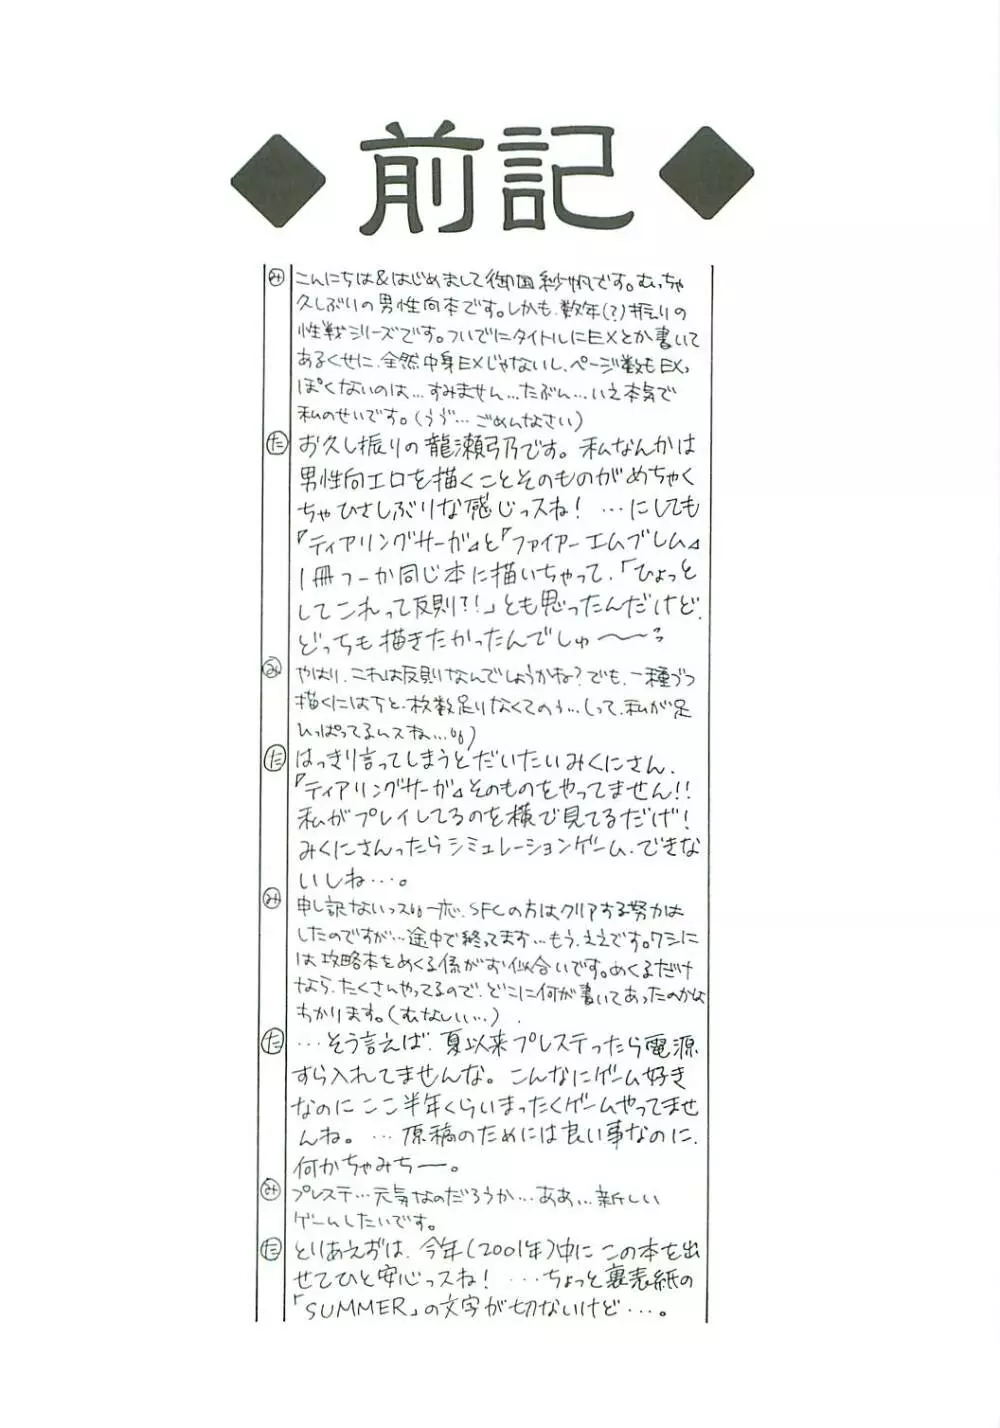 前記
み こんにちは&はじめまして御国紗帆です。むっちゃ
久しぶりの男性向本です。しかも、数年(?)振りの
性戦シリーズです。ついでにタイトルにEXとか書いて
あるくせに、全然中身EXじゃないし、ページ数もEXっ
ぽくないのは…すみません…たぶん…いえ本気で
私のせいです。(うづ…ごめんなさい)
た お久し振りの龍瀬弓乃です。私なんかは
男性向エロを描くことそのものがめちゃく
ちゃひさしぶりな感じっスね! …にしても
『ティアリングサーガ』と『ファイアーエムブレム』
1冊つーか同じ本に描いちゃって、「ひょっと
してこれって反則?!」とも思ったんだけど、
どっちも描きたかったんでしゅ〜〜っ
み やはり、これは反則なんでしょうかね?でも、一種づつ
描くにはちと、枚数足りなくてのう…(って、私が足
ひっぱってるんスね…)
た はっきり言ってしまうとだいたいみくにさん、
『ティアリングサーガ』そのものをやってません!!
私がプレイしてるのを横で見てるだけ!
みくにさんったらシミュレーションゲーム、できな
いしね…。
み 申し訳ないっス 一応、SFCの方はクリアする努力は
したのですが…途中で終ってます…もう、ええです。ワシに
は攻略本をめくる係がお似合いです。めくるだけ
なら、たくさんやってるので、どこに何が書いてあったのかな
わかります。(むなしい…)
た …そう言えば、夏以来プレステったら電源
すら入れてませんな。こんなにゲーム好き
なのにここ半年くらいまったくゲームやってませ
んね。…原稿のためには良い事なのに、
何かちゃみちー。
み プレステ…元気なのだろうか…ああ…新しい
ゲームしたいです。
た とりあえずは、今年(2001年)中にこの本を出
せてひと安心っスね! …ちょっと裏表紙の
「SUMMER」の文字が切ないけど…。